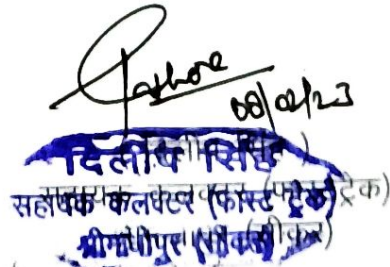 08/02/23
दिलीप सिंह
सहायक कलक्टर (फास्ट ट्रेक)
श्रीमाधोपुर (सीकर)